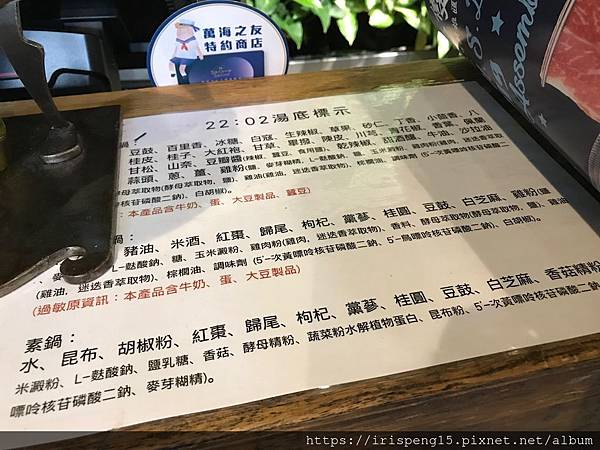 萬海之友
特約商店
Assemb
22:02湯底標示
鍋：
豆鼓、百里香、冰糖、白寇、生辣椒、草果、砂仁、丁香、小茴香、八
桂皮、桂子、大紅袍、甘草、畢撥、陳皮、川芎、青花椒、香葉、佩蘭
甘松、山奈、豆瓣醬(辣椒、蠶豆、食用鹽)、乾辣椒、甜酒釀、牛油、沙拉油
蒜頭、蔥、薑、雞粉
酵母萃取物(酵母萃取物、鹽)、雞油(雞油、迷迭香萃取物)、棕櫚油、調味劑
核苷磷酸二鈉)、白胡椒)。
：本產品含牛奶、蛋、大豆製品、蠶豆)
鍋：
豬油、米酒、紅棗、歸尾、枸杞、黨蔘、桂圓、豆鼓、白芝麻、雞粉(鹽
、麥芽糊精、L-麩酸鈉、糖、玉米澱粉、雞肉粉(雞肉、迷迭香萃取物)、香料、酵母萃取物(酵母萃取物、鹽)、雞油
(雞油、迷迭香萃取物)、棕櫚油、調味劑 (5'-次黃嘌呤核苷磷酸二鈉、5'-鳥嘌呤核苷磷酸二鈉)、白胡椒)。
(過敏原資訊：本產品含牛奶、蛋、大豆製品)
素鍋：
水、昆布、胡椒粉、紅棗、歸尾、枸杞、黨蔘、桂圓、豆鼓、白芝麻、香菇精粉
米澱粉、L-麩酸鈉、鹽乳糖、香菇、酵母精粉、蔬菜粉水解植物蛋白、昆布粉、5'-次黃嘌呤核苷磷酸二
嘌呤核苷磷酸二鈉、麥芽糊精)。
https://irispeng15.pixnet.net/album